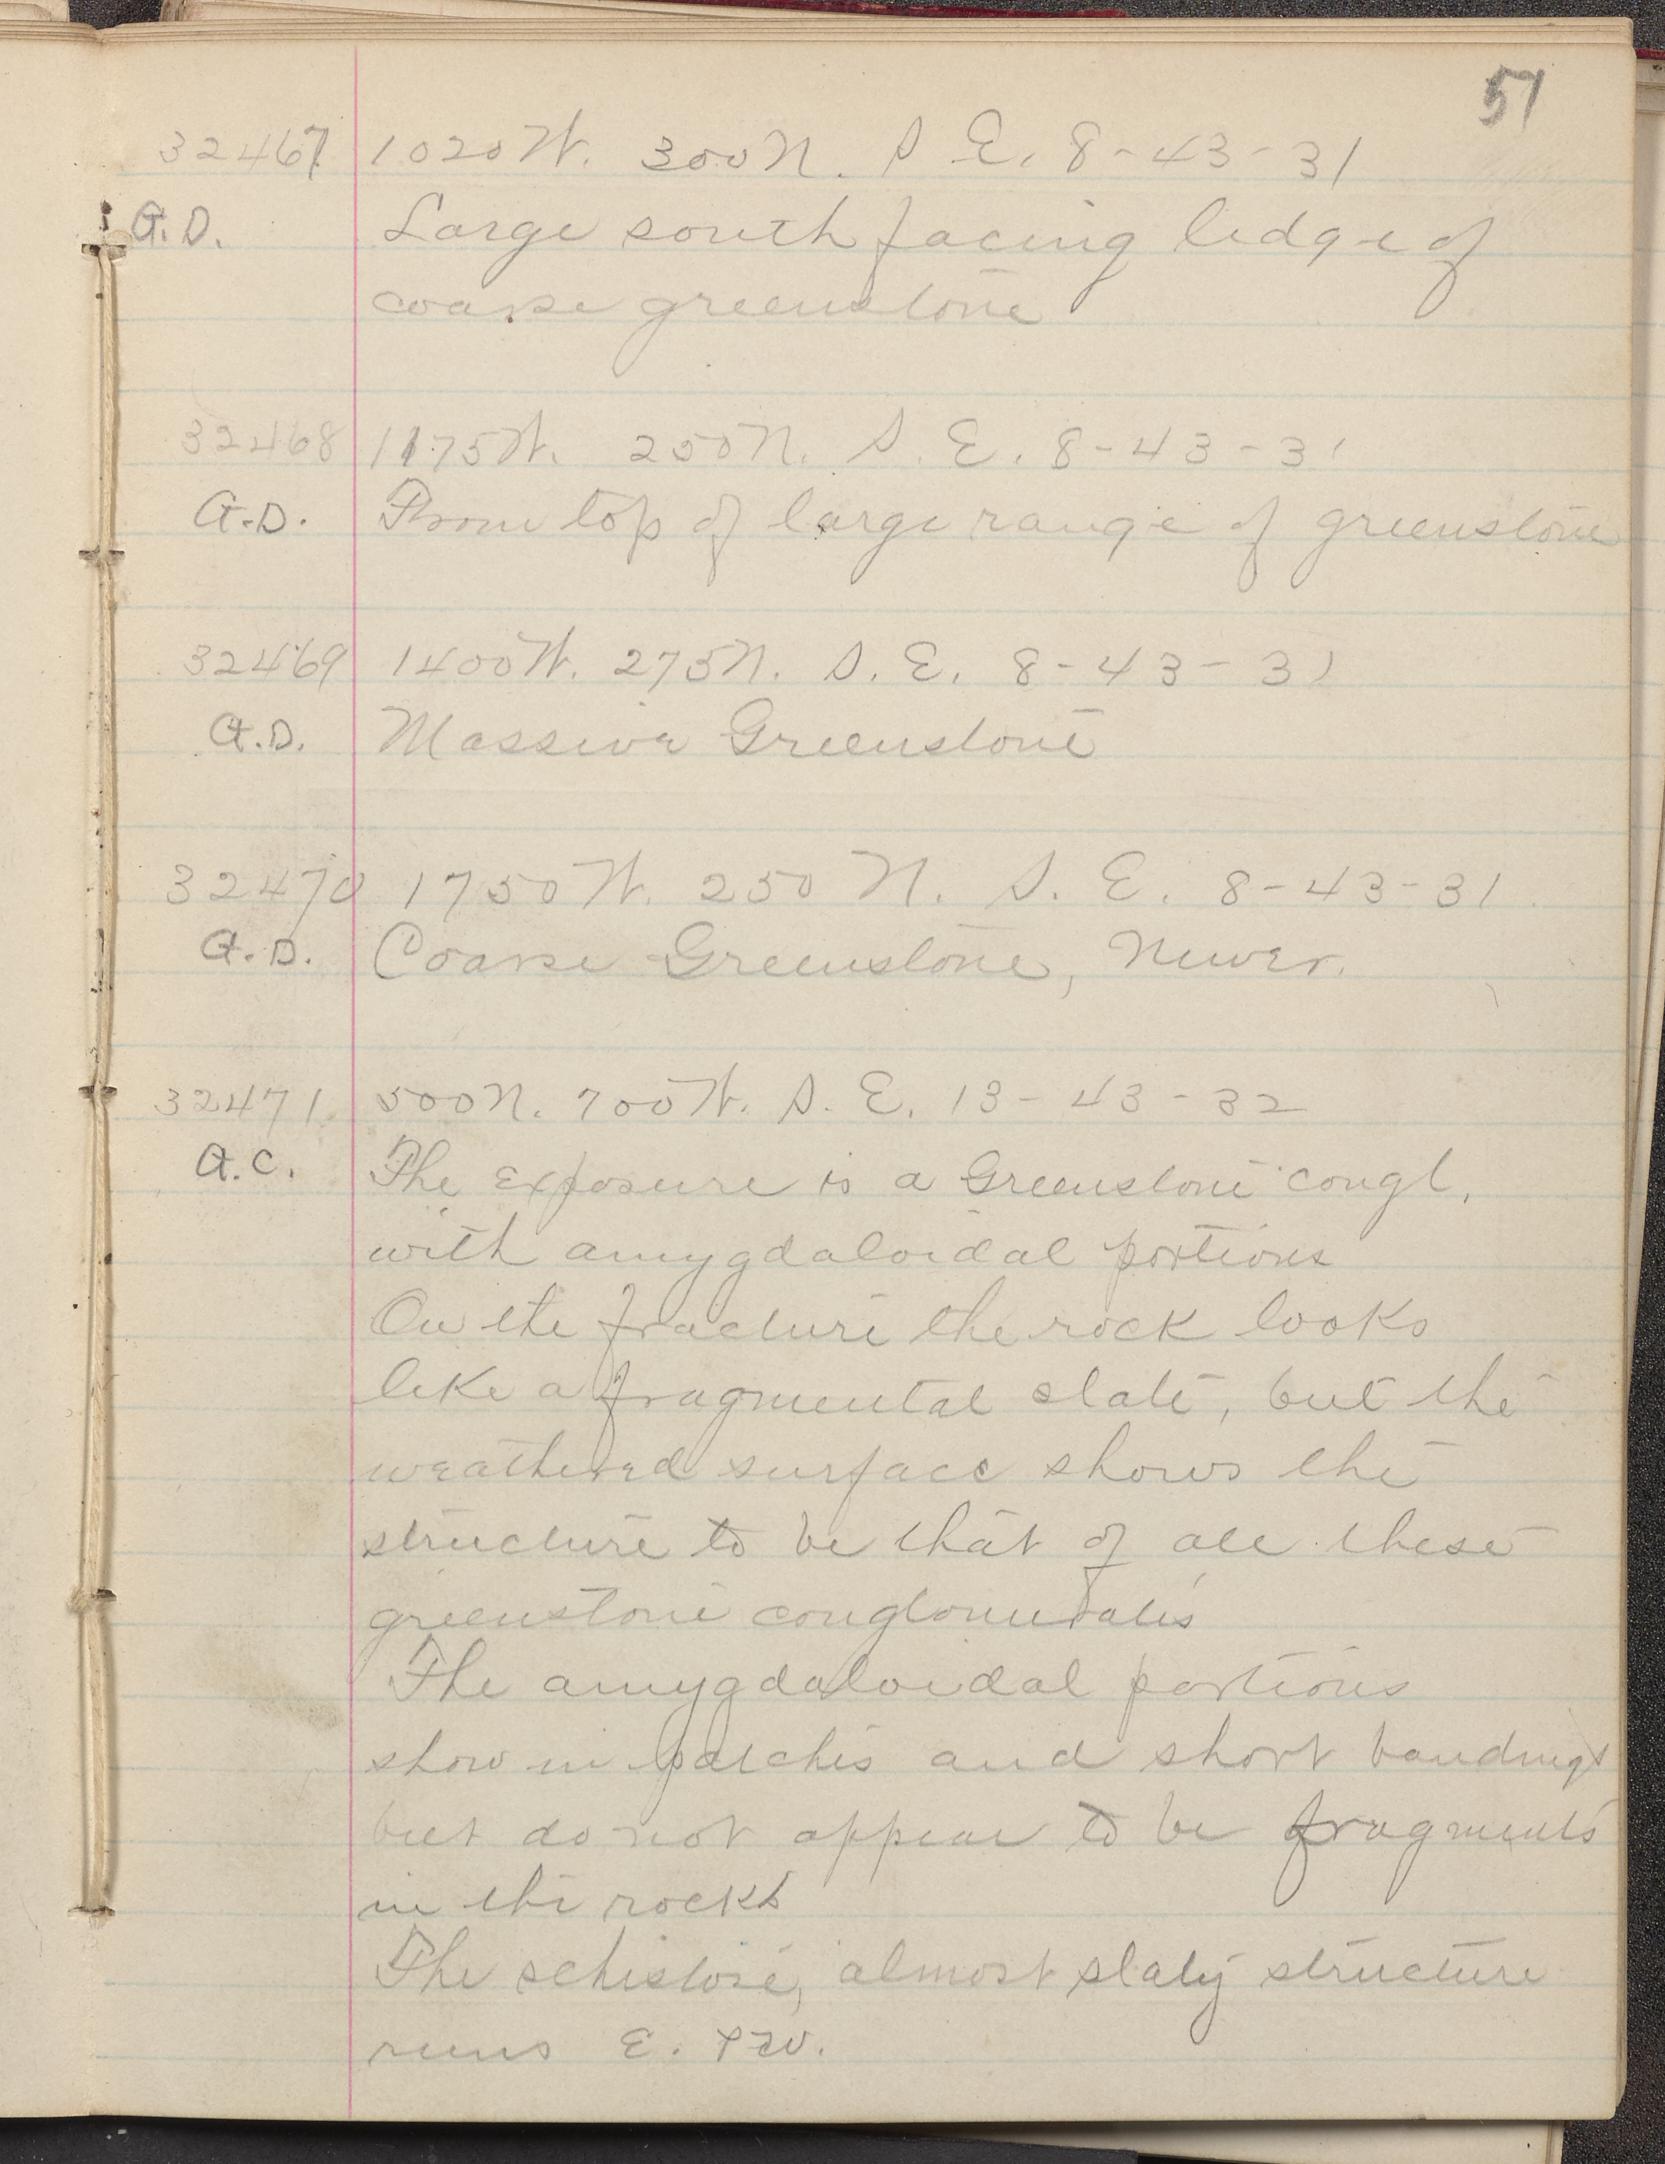 57
32467 1020 W. 300 N. S E. 8-43-31
A.D. Large south facing ledge of
coarse greenstone
32468 1175 W. 250 N. S. E. 8-43-31
A.D. From top of large range of greenstone
32469 1400 W. 275 N. S. E. 8-43-31
A.D. Massive Greenstone
32470 1750 W. 250 N. S. E. 8-43-31
A.D. Coarse Greenstone, Newer.
32471 500 N. 700 W. S. E. 13-43-32
A.C. The exposure is a Greenstone congl.
with amygdaloidal portions
On the fracture the rock looks
like a fragmental slate, but the
weathered surface shows the
structure to be that of all these
greenstone conglomerates
The amygdaloidal portions
show in patches and short bandings
but do not appear to be fragments
in the rocks
The schistose, almost slaty structure
runs E. + W.